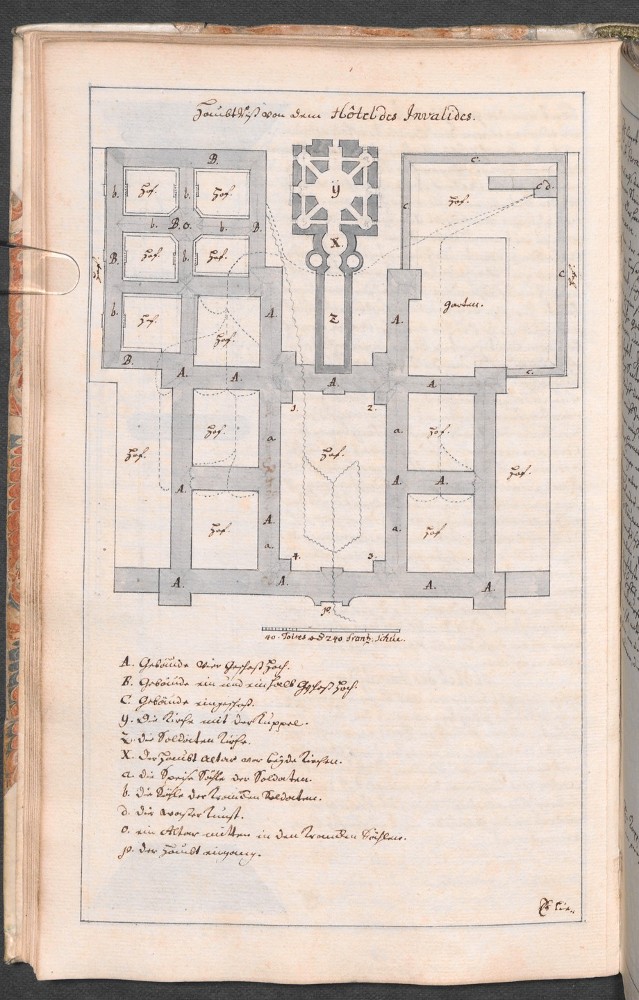 Haubt Riß von dem Hôtel des Invalides.
B.
C.
b. Hof. b. Hof.
Hof.
C. d.
ÿ
C
b. B. o. b. B.
X
B. Hof. b. Hof.
C
b. Hof.
Hof.
A.
z
A.
garten.
B.
A. A. A. A. C.
1. 2.
Hof. Hof. a. Hof. a. Hof. Hof.
A. A. A.
Hof. A. a. a. Hof
4. 3.
A. A. A. A.
p.
40 Toises od 240 frantz. Schue.
A. Gebäude vier Geschoß hoch.
B. Gebäude ein und ein halb Geschoß hoch.
C. Gebäude eingeschoß.
ÿ. Die Kirche mit der Kuppel.
z. die Soldaten Kirche.
X. der Haubt altar vor beyde Kirchen.
a. die Speise Sähle der Soldaten.
b. die Sähle der Kranken Soldaten.
d. die wasser Kunst.
o. ein Altar mitten in den Kranken Sählen.
p. der Haubt eingang.